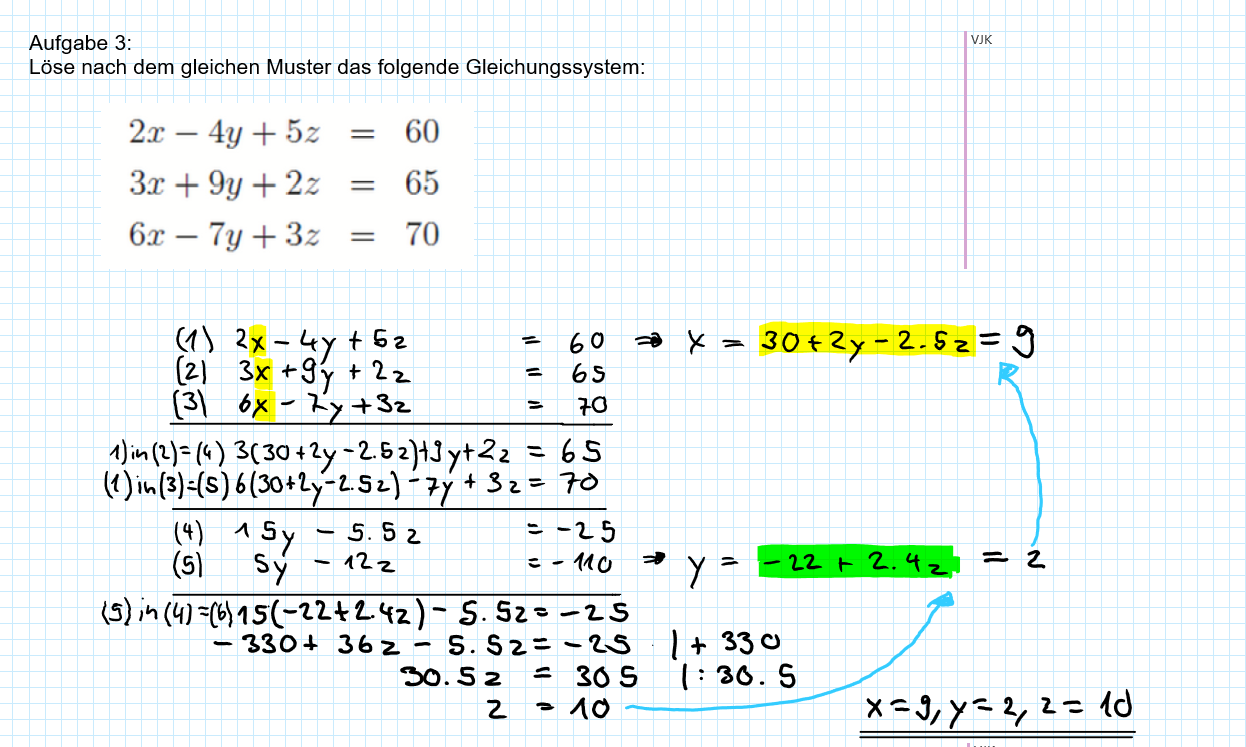 Aufgabe 3:
VJK
Löse nach dem gleichen Muster das folgende Gleichungssystem:
2x − 4y + 5z = 60
3x + 9y + 2z = 65
6x − 7y + 3z = 70
(1) 2x - 4y + 5z = 60 ⇒ x = 30 + 2y - 2.5z = 9
(2) 3x + 9y + 2z = 65
(3) 6x - 7y + 3z = 70
1) in (2) = (4) 3(30+2y-2.5z)+9y+2z = 65
(1) in (3) = (5) 6(30+2y-2.5z) - 7y + 3z = 70
(4) 15y - 5.5z = -25
(5) 5y - 12z = -110 ⇒ y = -22 + 2.4z = 2
(5) in (4) = (6) 15(-22+2.4z) - 5.5z = -25
-330 + 36z - 5.5z = -25 | + 330
30.5z = 305 | : 30.5
z = 10
x = 9, y = 2, z = 10